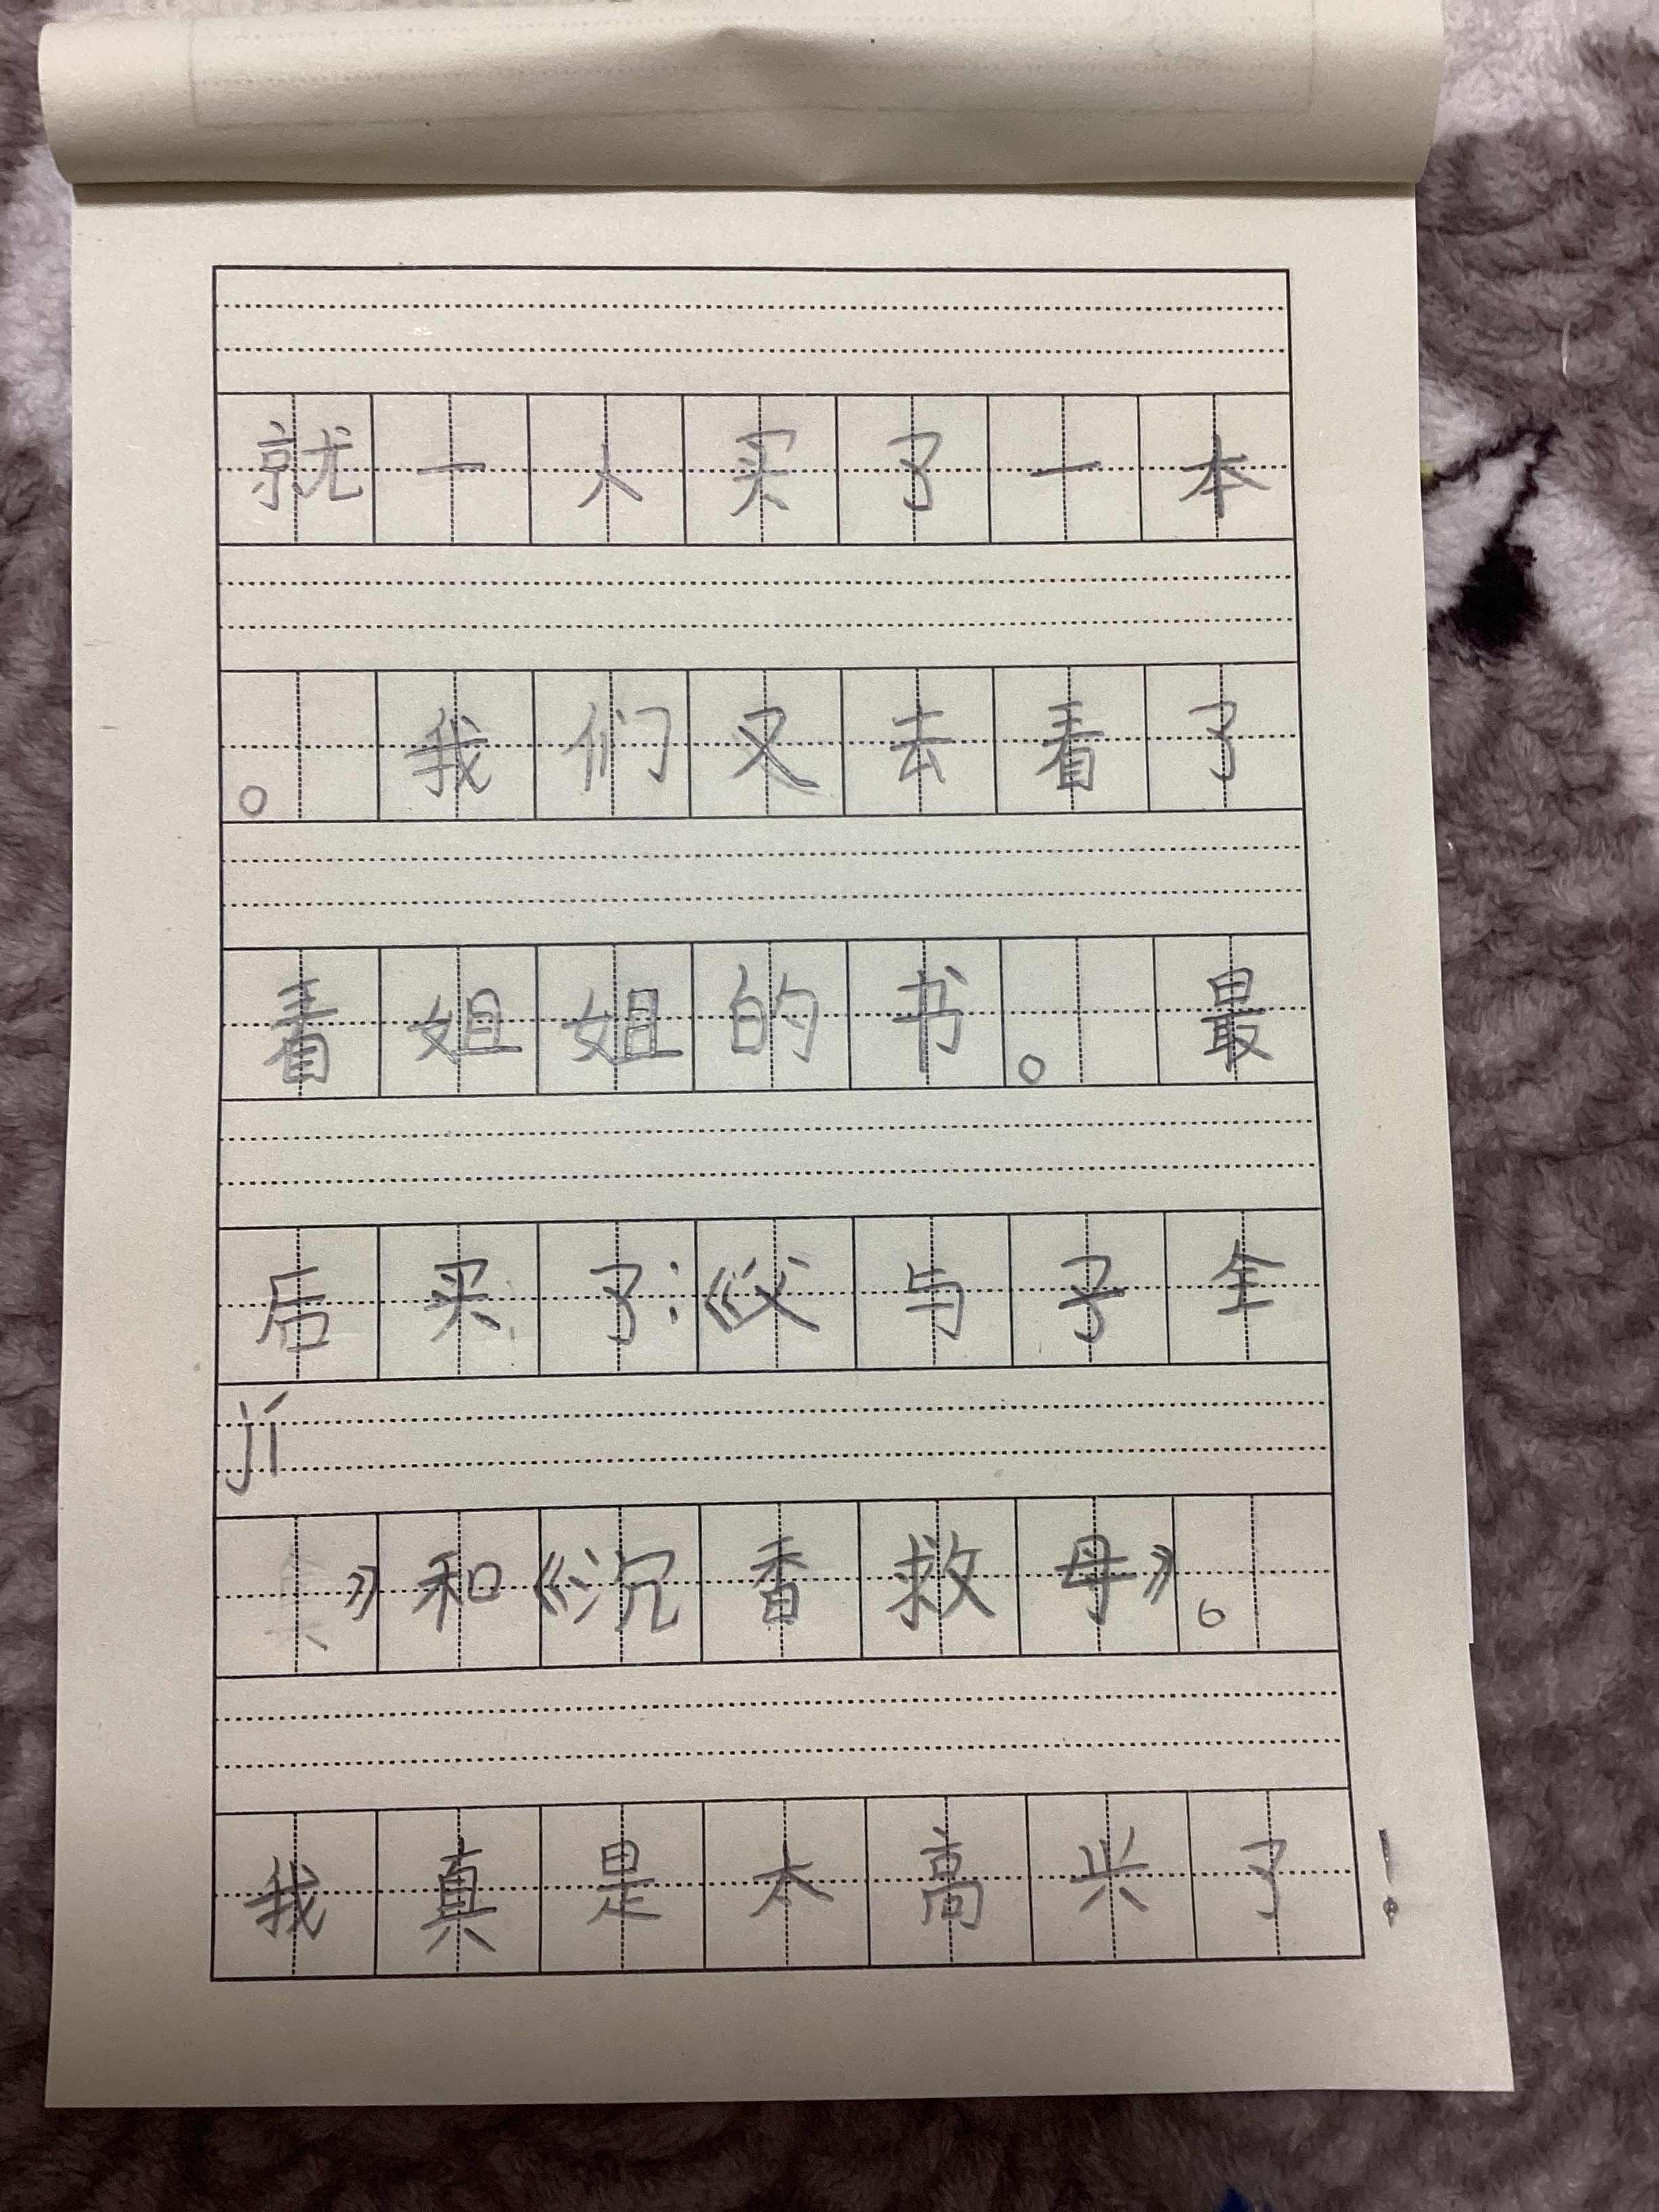 就一人买了一本
。我们又去看了
看姐姐的书。最
后买了:《父与子全
jí
》和《沉香救母》。
我真是太高兴了!